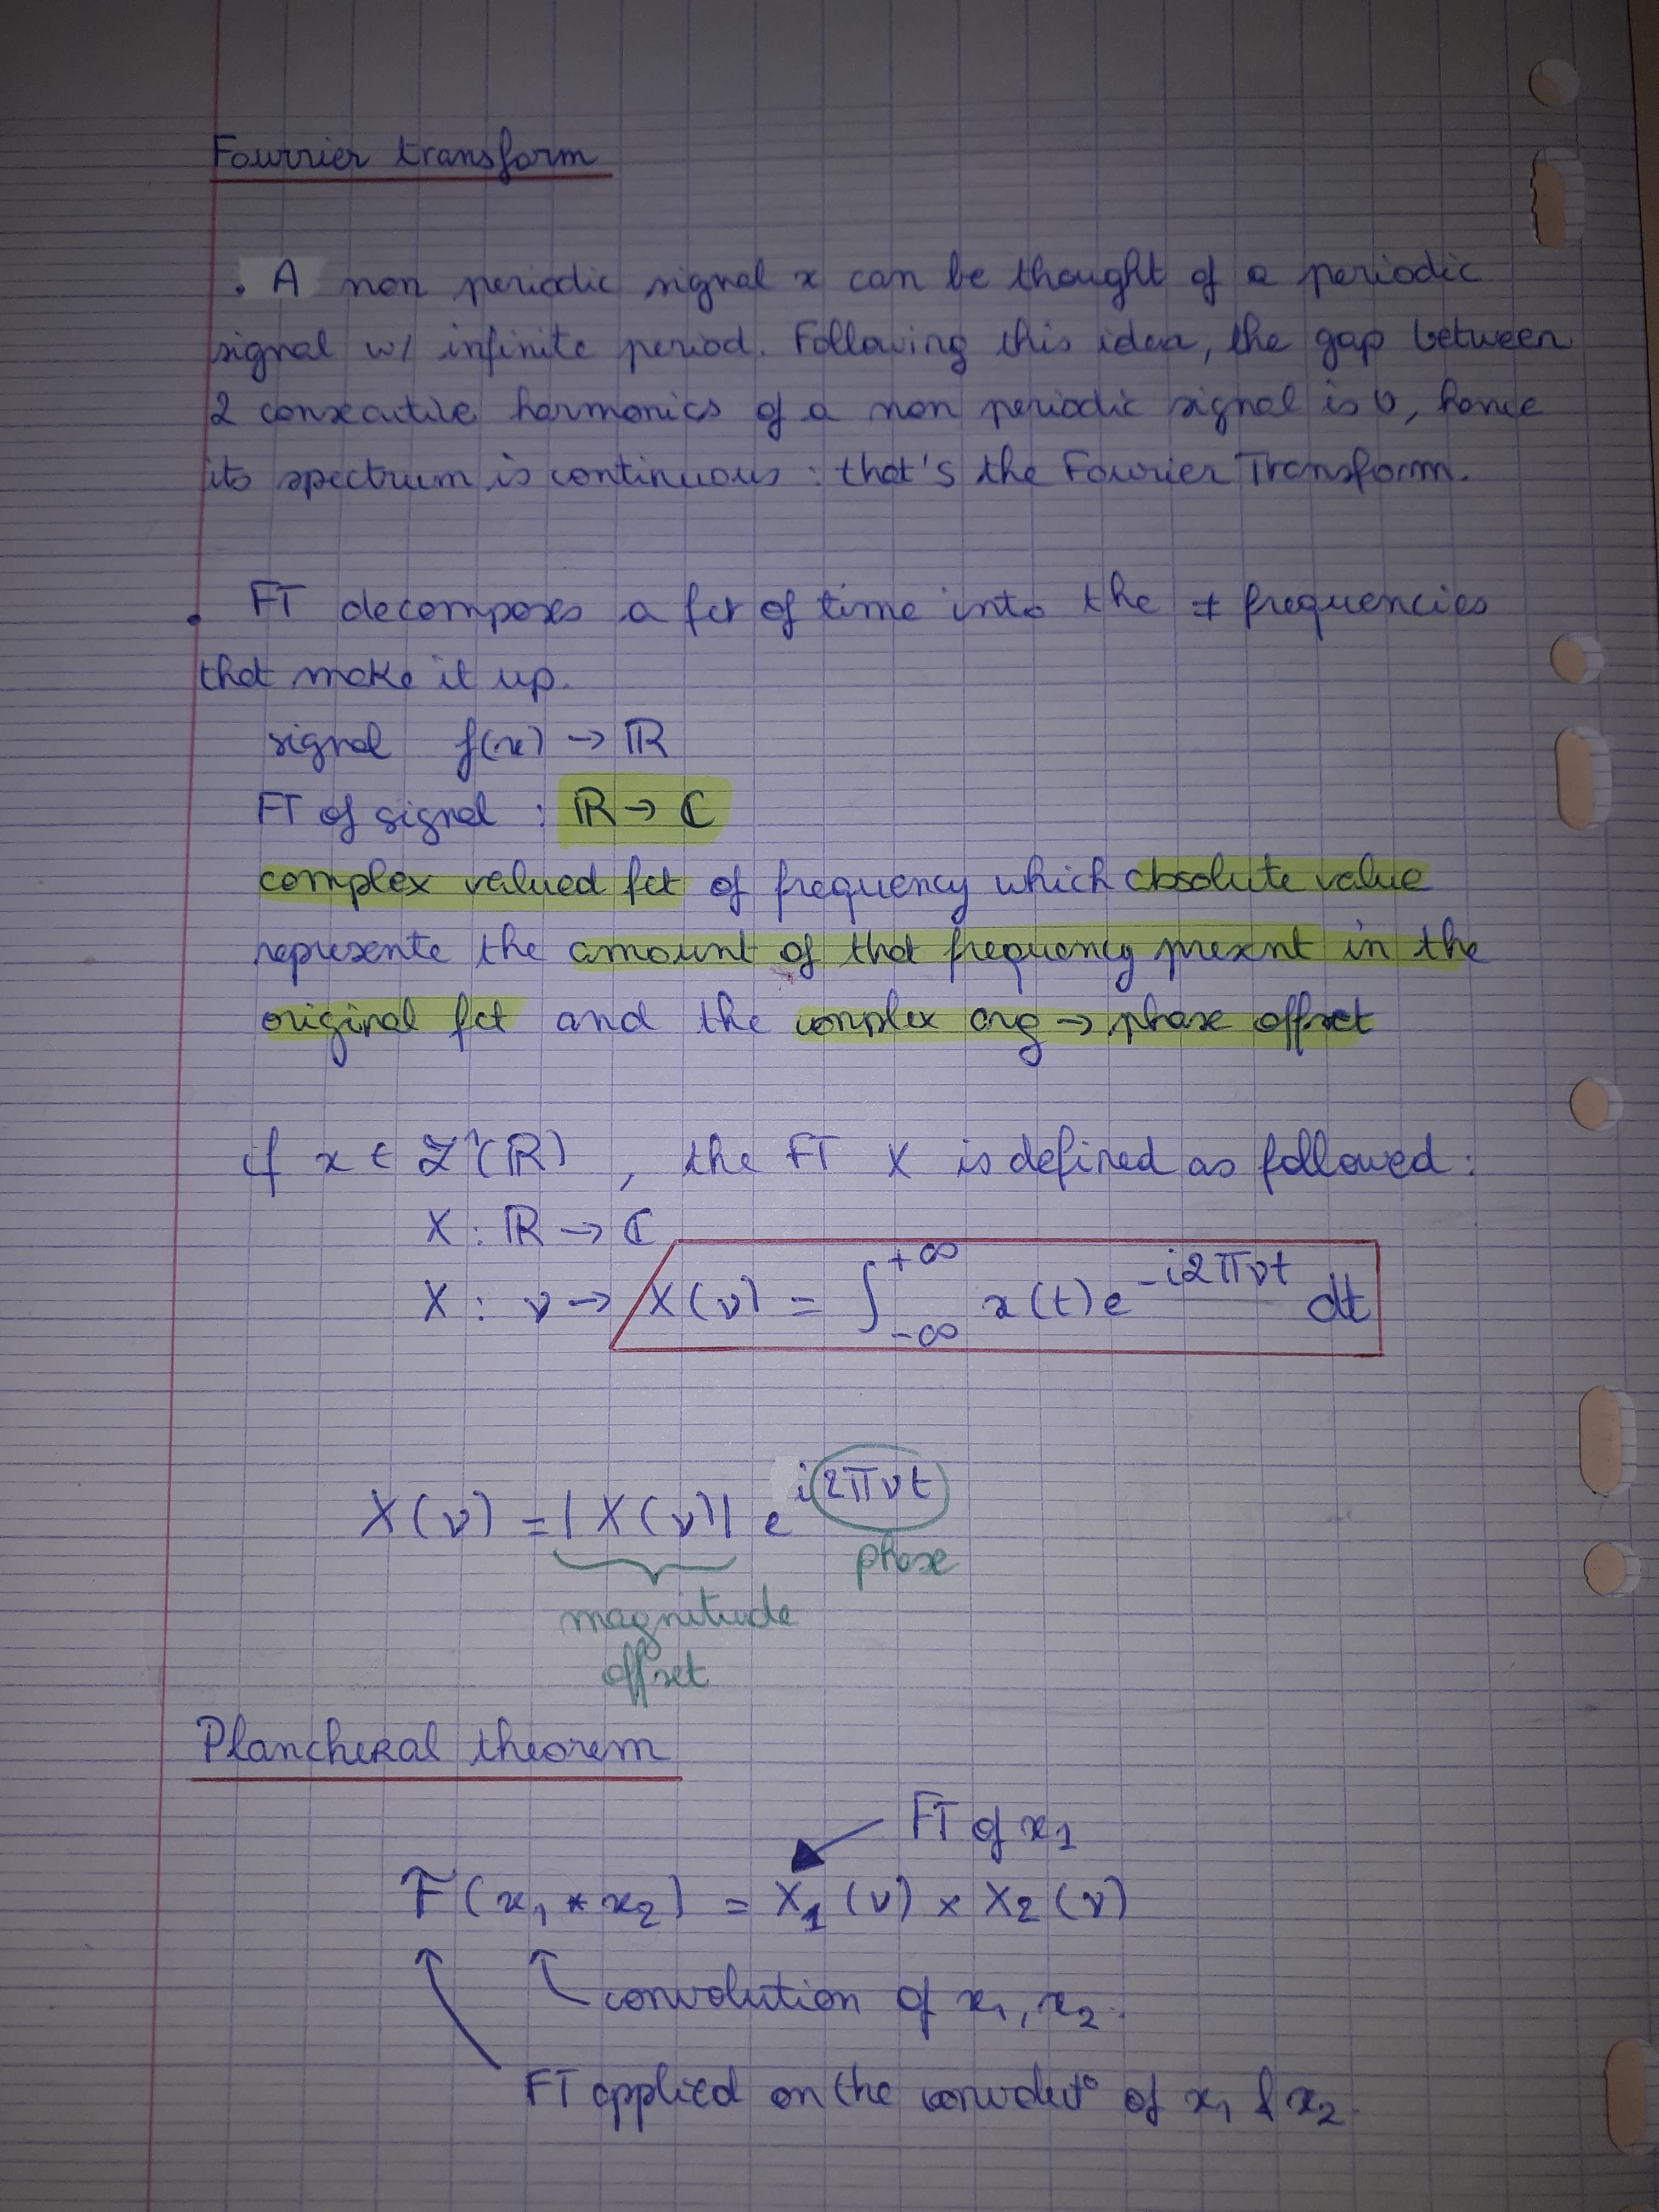 Fourrier transform
. A non periodic signal x can be thought of a periodic
signal w/ infinite period. Following this idea, the gap between
2 consecutive harmonics of a non periodic signal is 0, hence
its spectrum is continuous : that's the Fourier Transform.
. FT decomposes a fct of time into the ≠ frequencies
that make it up.
signal f(x) → ℝ
FT of signal : ℝ → ℂ
complex valued fct of frequency which absolute value
represente the amount of that frequency present in the
original fct and the complex arg → phase offset
if x ∈ ℒ¹(ℝ) , the FT X is defined as followed :
X : ℝ → ℂ
X : ν → X(ν) = ∫_{-∞}^{+∞} x(t) e^{-i2πνt} dt
X(ν) = |X(ν)| e^{i2πνt}
phase
magnitude
offset
Plancheral theorem
FT of x₁
F(x₁ * x₂) = X₁(ν) × X₂(ν)
convolution of x₁, x₂.
FT applied on the convolut° of x₁ & x₂.